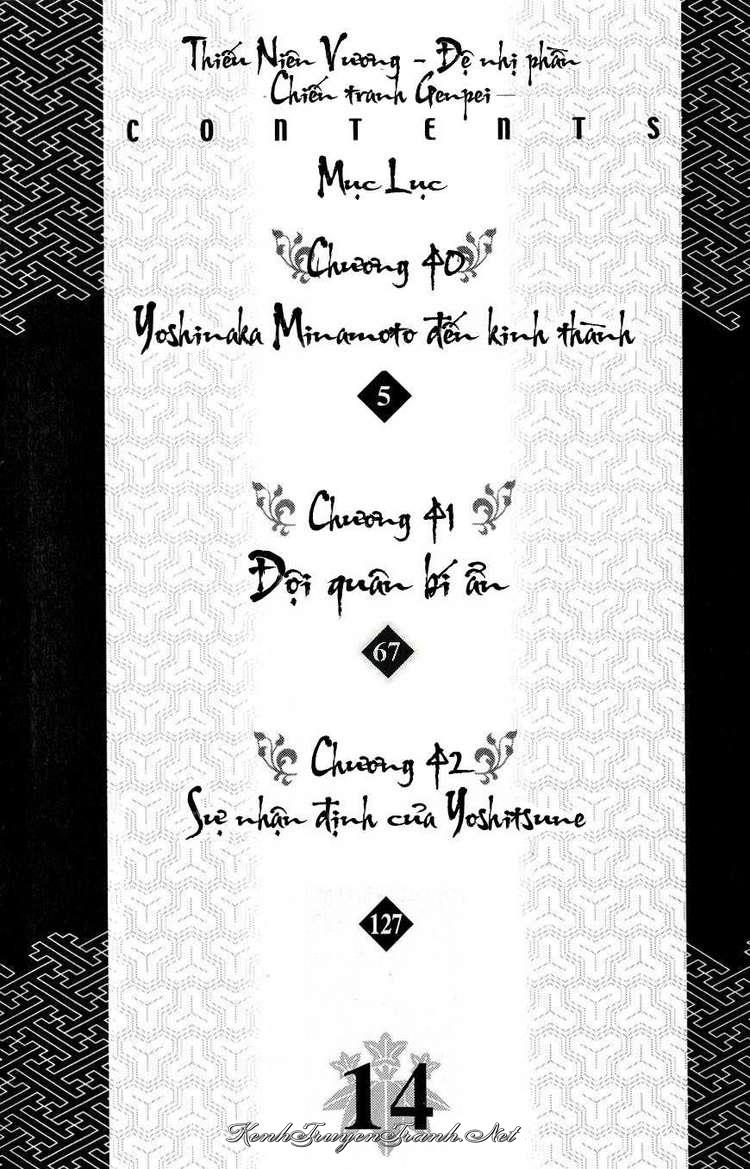 Thiếu Niên Vương - Đệ nhị phần
- Chiến tranh Genpei -
CONTENTS
Mục Lục
Chương 40
Yoshinaka Minamoto đến kinh thành
5
Chương 41
Đội quân bí ẩn
67
Chương 42
Sự nhận định của Yoshitsune
127
14
KenhTruyenTranh.Net